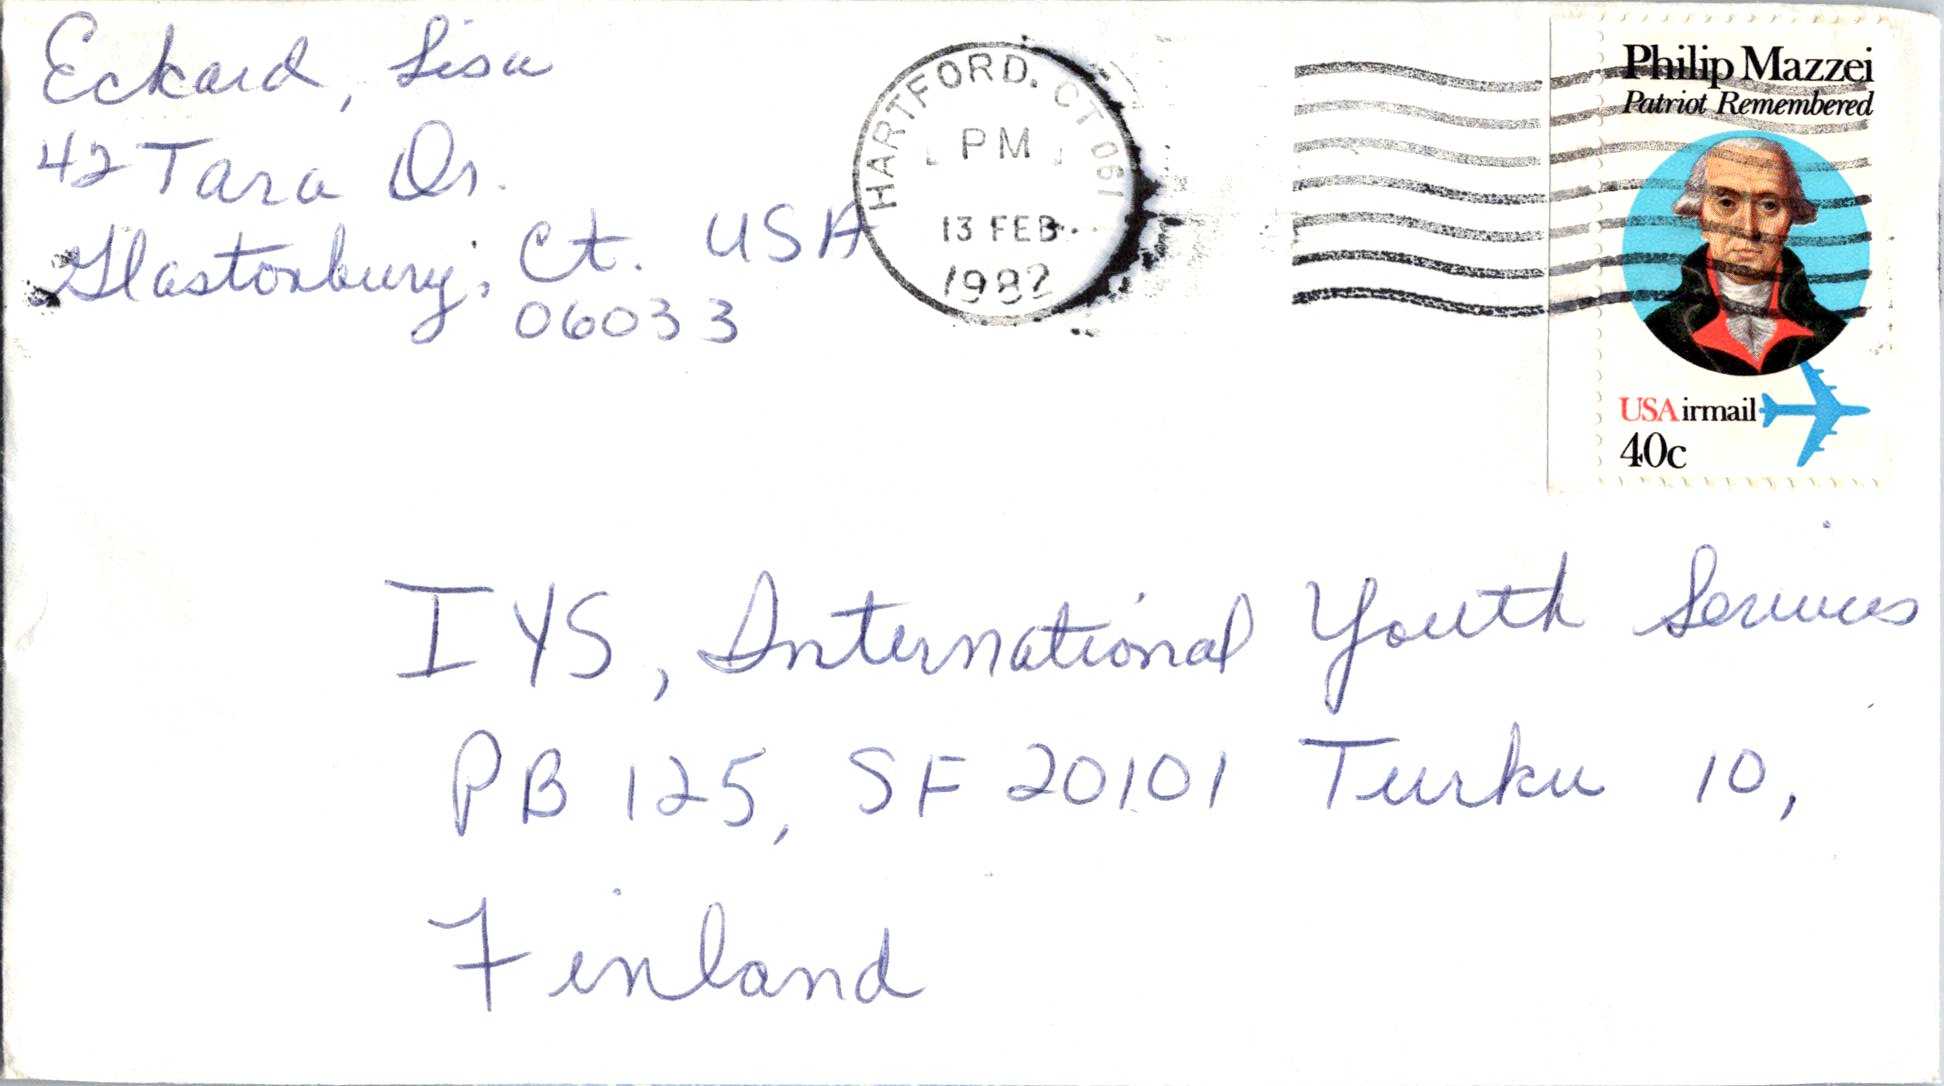 Eckard, Lisa
42 Tara Dr.
Glastonbury, Ct. USA
06033
HARTFORD, CT 061
PM
13 FEB
1982
Philip Mazzei
Patriot Remembered
USAirmail
40c
IYS, International Youth Services
PB 125, SF 20101 Turku 10,
Finland